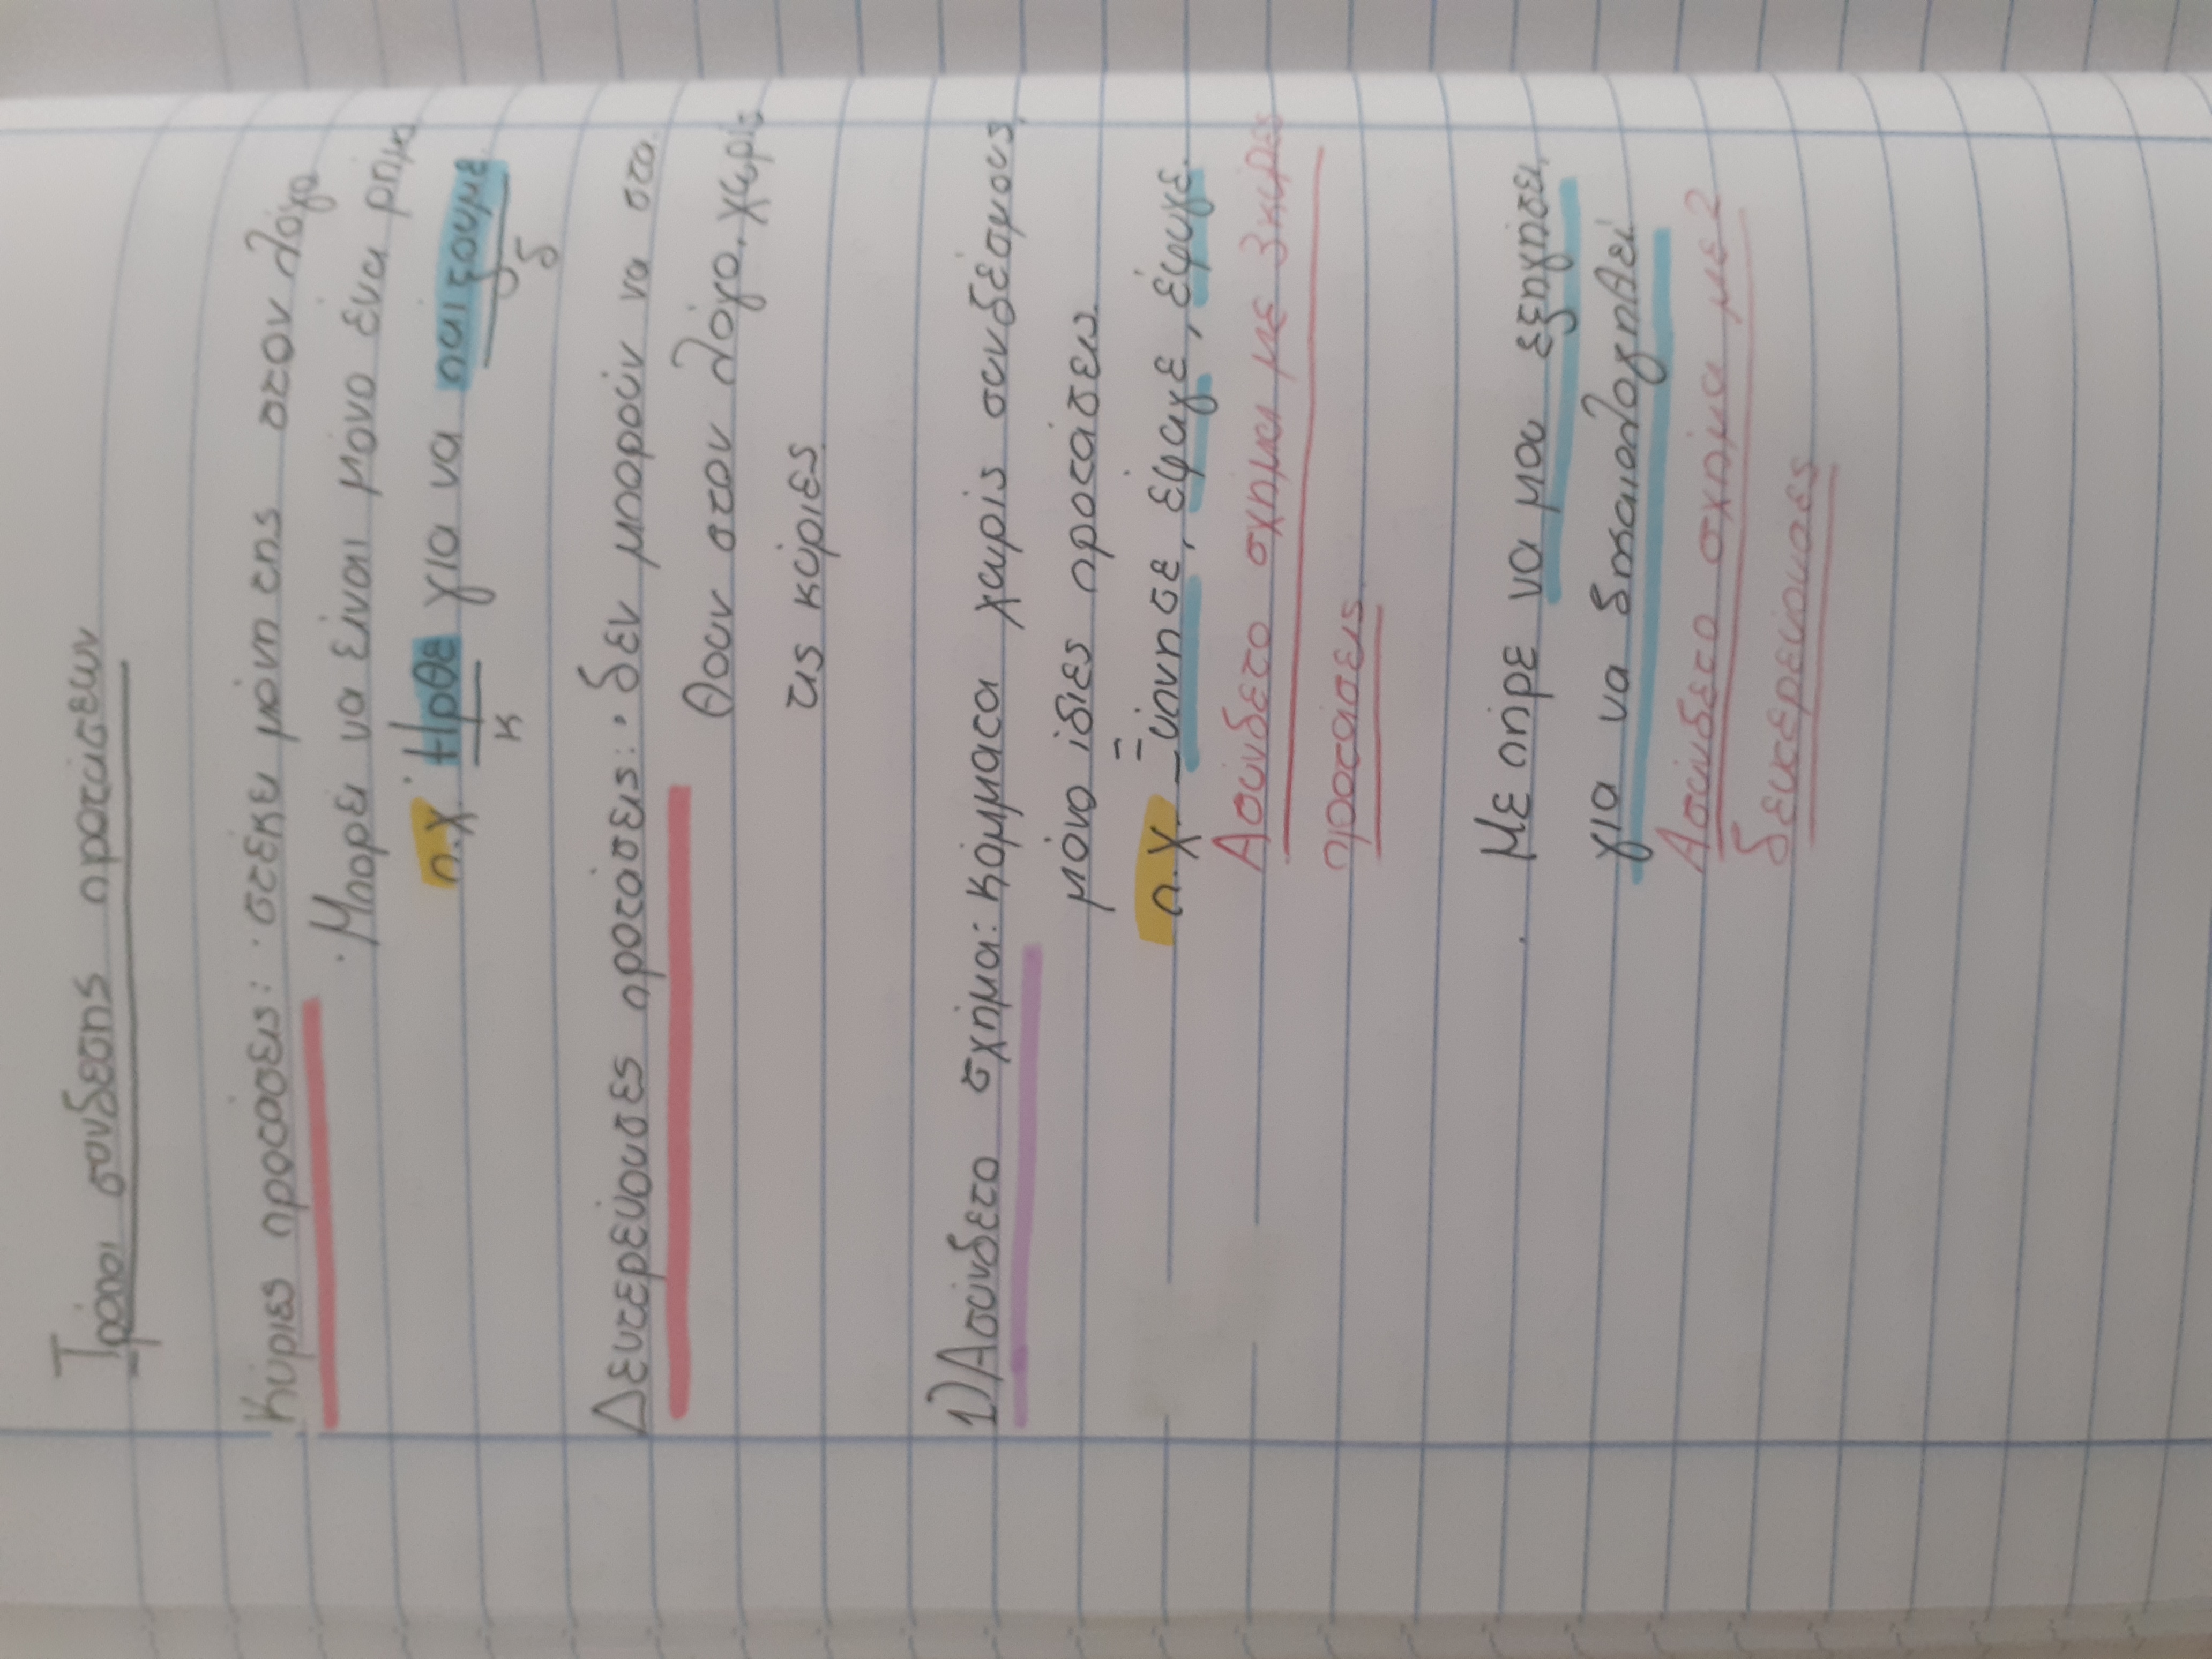 Τρόποι σύνδεσης προτάσεων
Κύριες προτάσεις: · στέκει μόνη της στον λόγο
· Μπορεί να είναι μόνο ένα ρήμα
π.χ. Ήρθε για να παίξουμε.
κ δ
Δευτερεύουσες προτάσεις: · δεν μπορούν να στα
θουν στον λόγο. χωρίς
τις κύριες.
1) Ασύνδετο σχήμα: κόμματα χωρίς συνδέσμους,
μόνο ίδιες προτάσεις.
π.χ. Ξύπνησε, έφαγε, έφυγε.
Ασύνδετο σχήμα με 3 κύριες
προτάσεις.
. Με πήρε να μου εξηγήσει,
για να δικαιολογηθεί.
Ασύνδετο σχήμα με 2
δευτερεύουσες